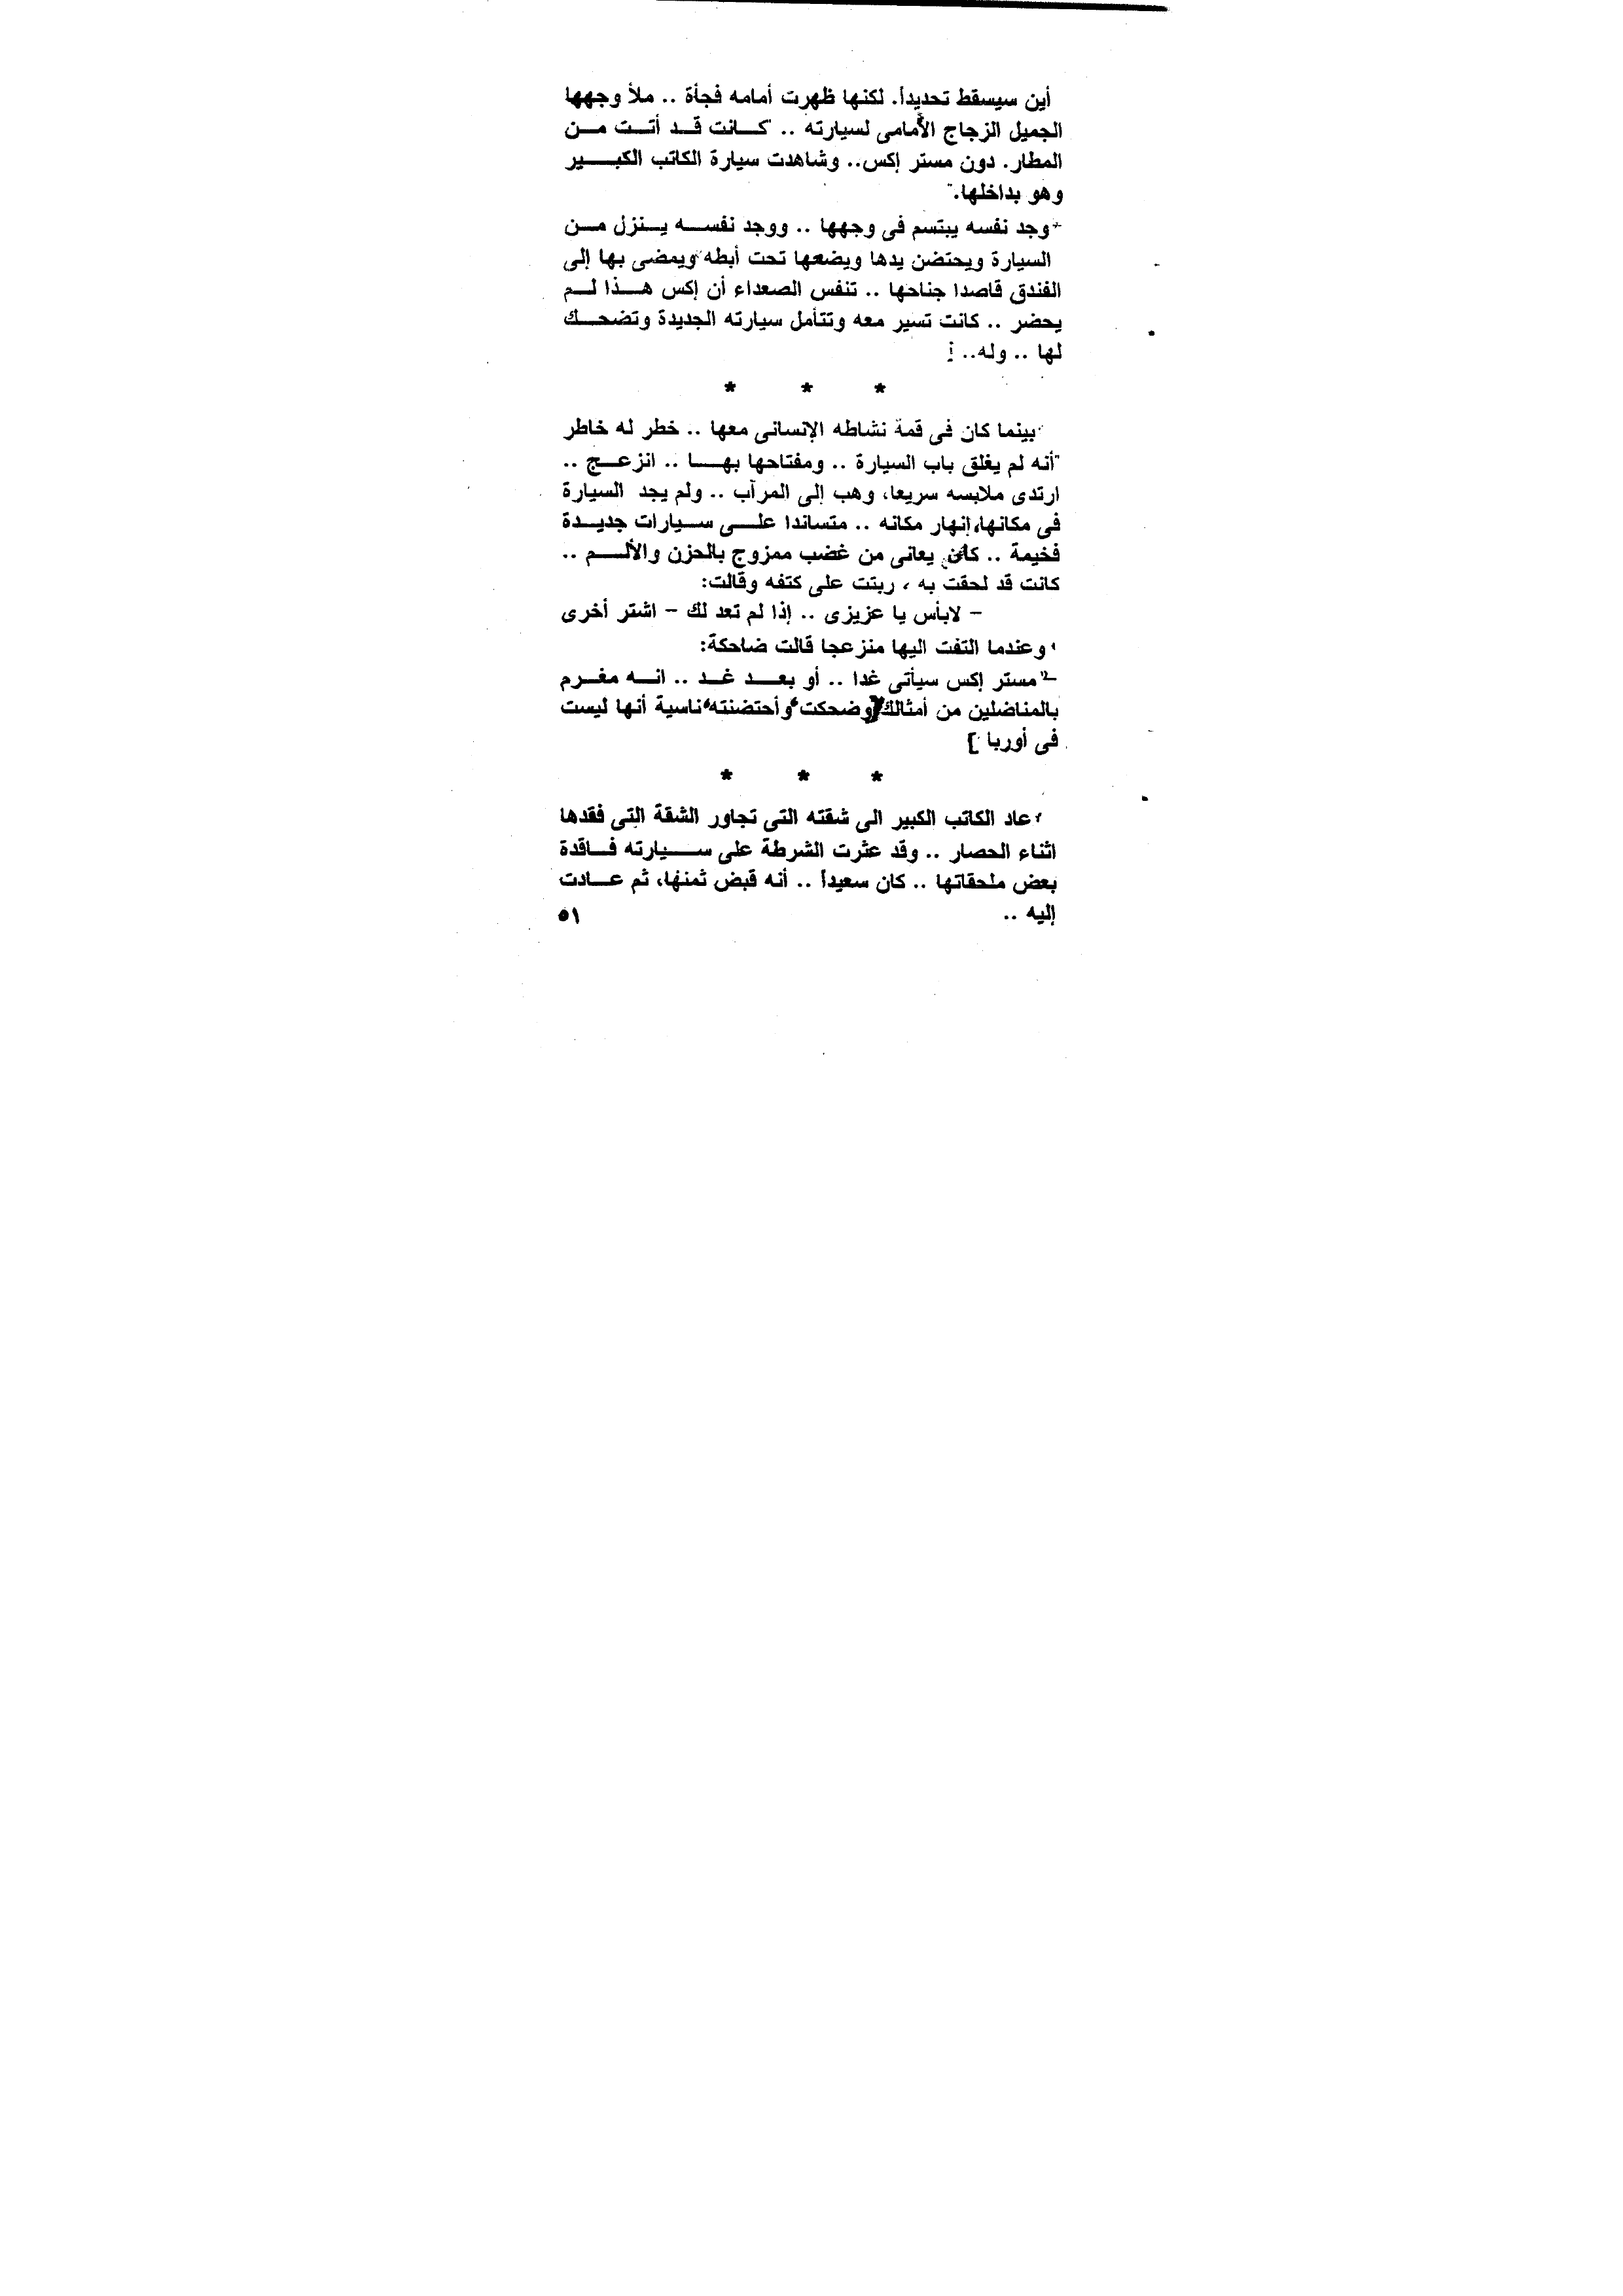 أين سيسقط تحديداً. لكنها ظهرت أمامه فجأة .. ملأ وجهها
الجميل الزجاج الأمامى لسيارته .. "كانت قد أتت من
المطار. دون مستر إكس.. وشاهدت سيارة الكاتب الكبير
وهو بداخلها."
وجد نفسه يبتسم فى وجهها .. ووجد نفسه ينزل من
السيارة ويحتضن يدها ويضعها تحت أبطه ويمضى بها إلى
الفندق قاصدا جناحها .. تنفس الصعداء أن إكس هذا لم
يحضر .. كانت تسير معه وتتأمل سيارته الجديدة وتضحك
لها .. وله.. !
* * *
بينما كان فى قمة نشاطه الإنسانى معها .. خطر له خاطر
"أنه لم يغلق باب السيارة .. ومفتاحها بها .. انزعج ..
ارتدى ملابسه سريعا، وهب إلى المرآب .. ولم يجد السيارة
فى مكانها، إنهار مكانه .. متساندا على سيارات جديدة
فخيمة .. كان يعانى من غضب ممزوج بالحزن والألم ..
كانت قد لحقت به ، ربتت على كتفه وقالت:
- لابأس يا عزيزى .. إذا لم تعد لك - اشتر أخرى
وعندما التفت اليها منزعجا قالت ضاحكة:
- مستر إكس سيأتى غدا .. أو بعد غد .. انه مغرم
بالمناضلين من أمثالك وضحكت وأحتضنته ناسية أنها ليست
فى أوربا ]
* * *
عاد الكاتب الكبير الى شقته التى تجاور الشقة التى فقدها
اثناء الحصار .. وقد عثرت الشرطة على سيارته فاقدة
بعض ملحقاتها .. كان سعيداً .. أنه قبض ثمنها، ثم عادت
إليه ..
٥١